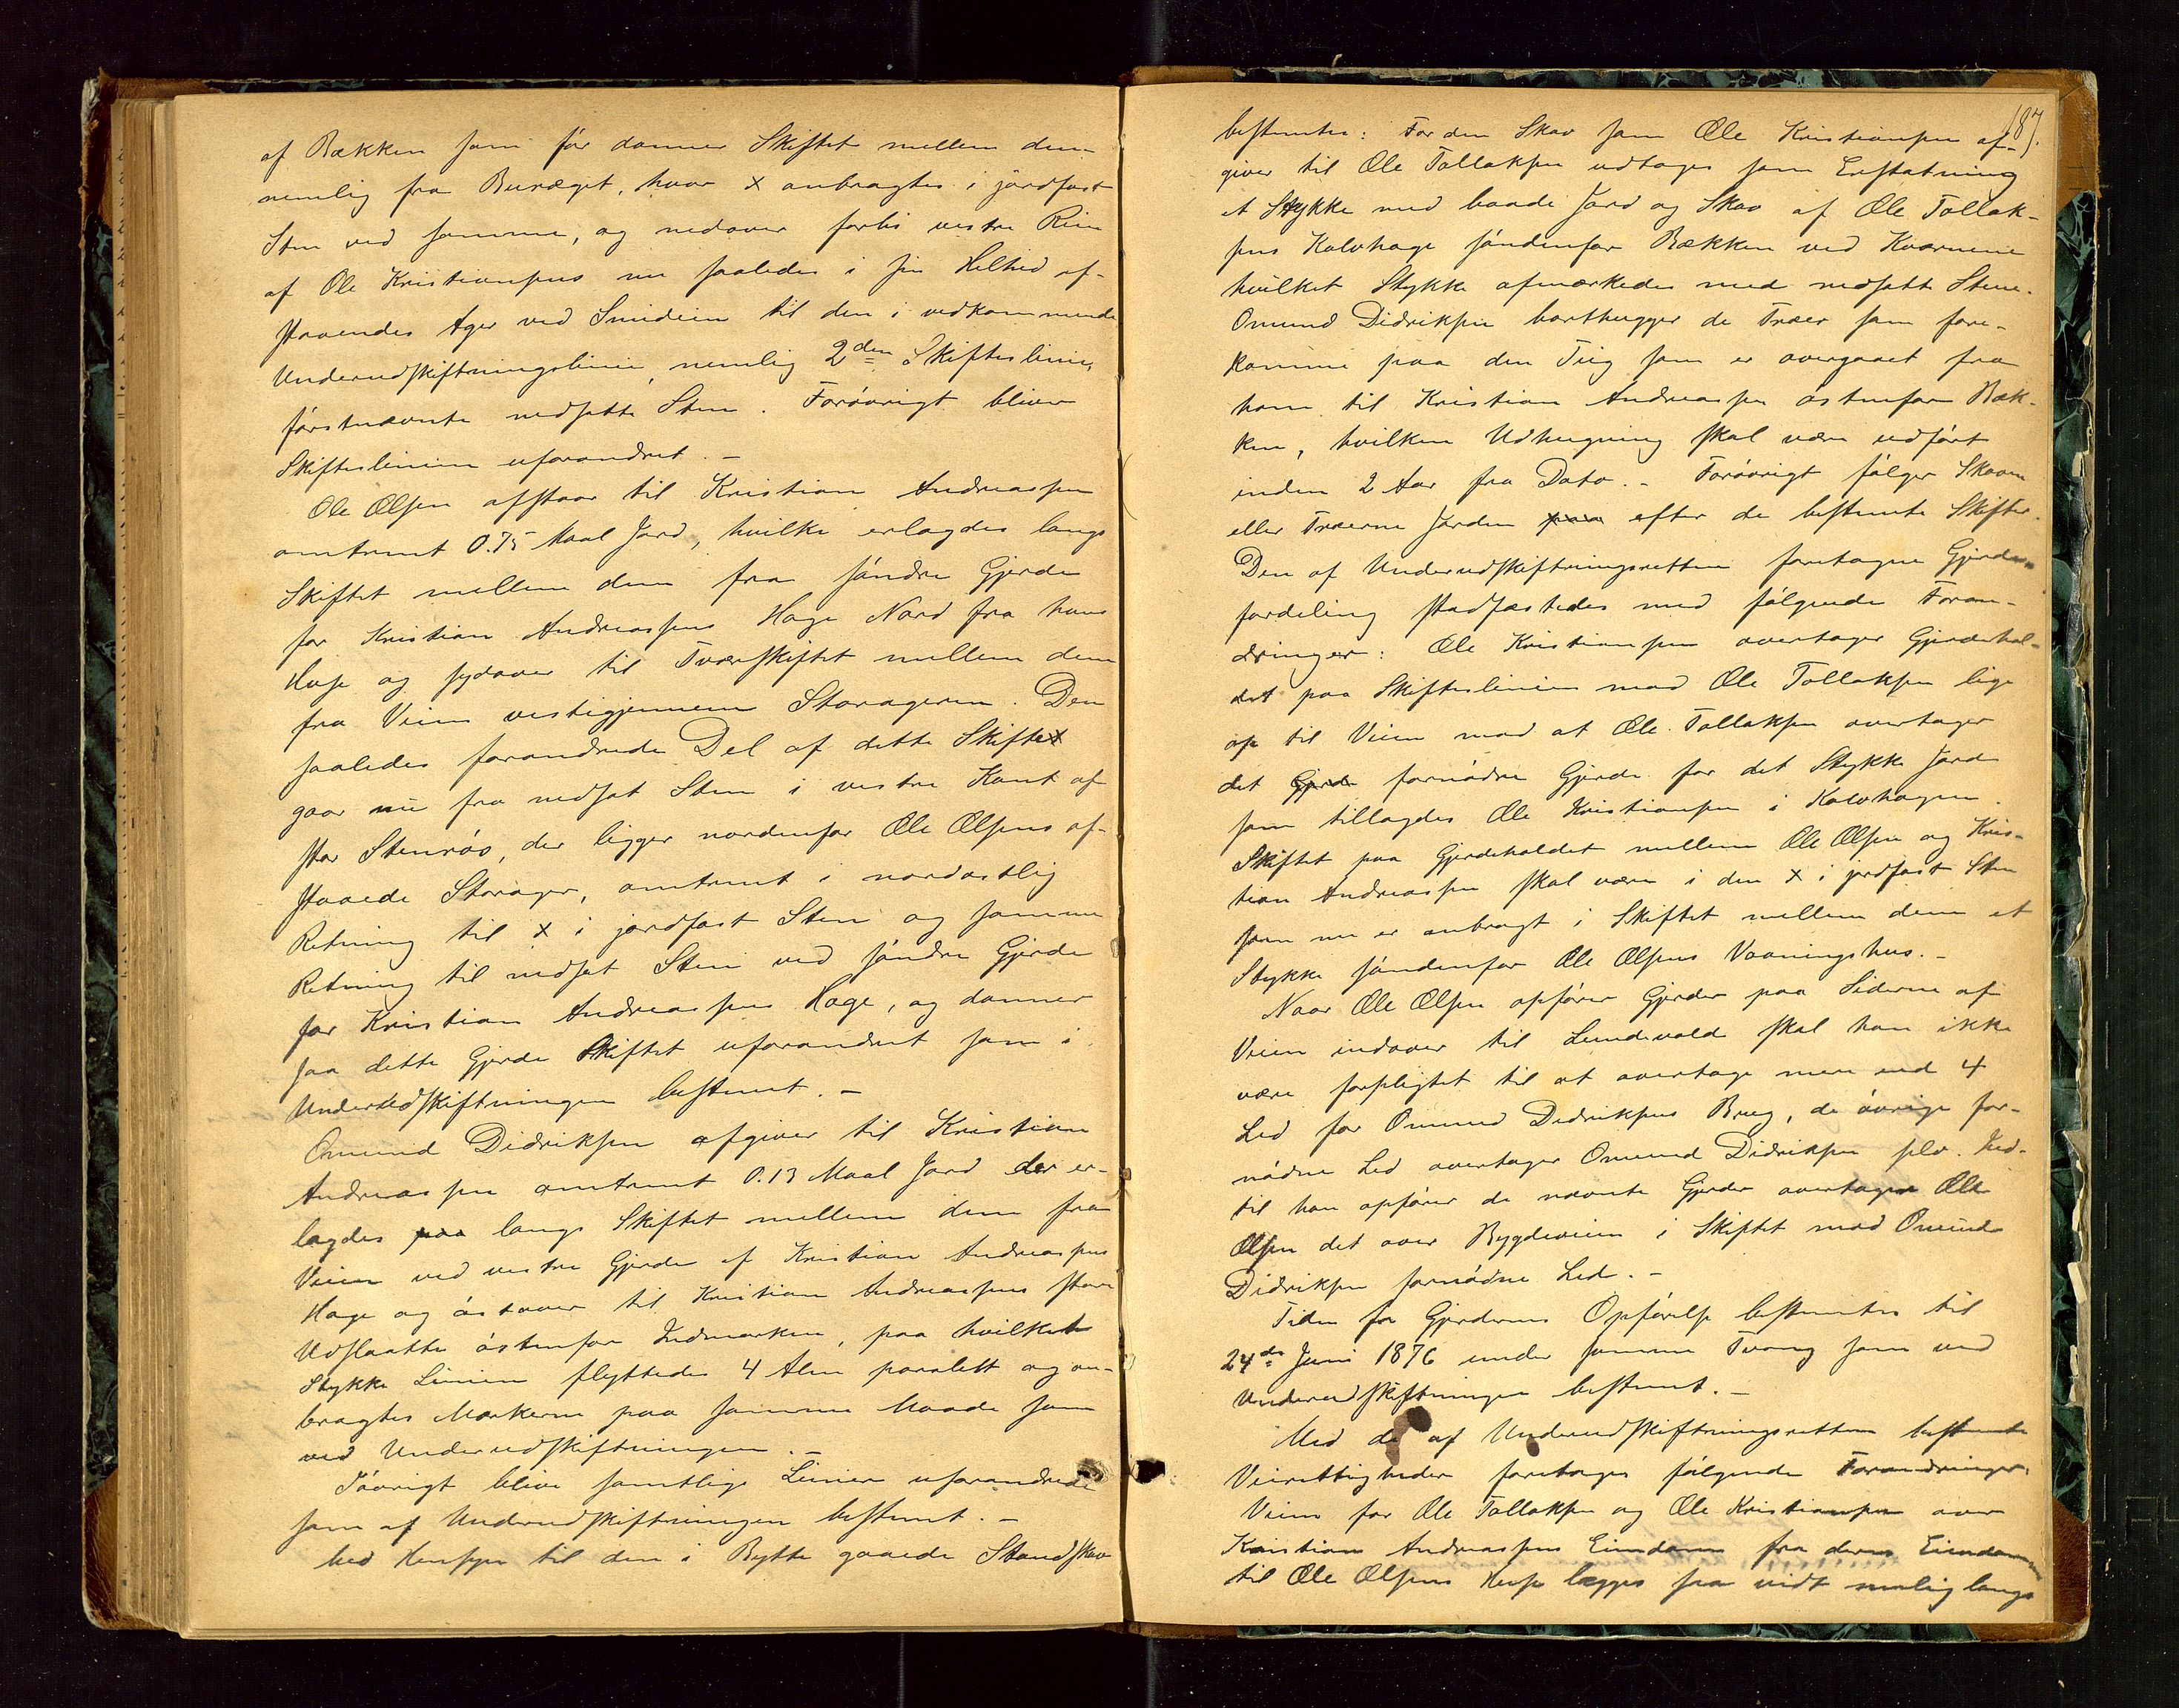 af Bækken som før danner Skiftet mellem dem
nemlig fra Buræget, hvor x anbragtes i jordfast
Sten ved samme, og nedover forbi vestre Rein
af Ole Kristiansens nu saaledes i sin Helhed af-
staaendes Ager ved Smideien til den i vedkommende
Underudskiftningslinie, nemlig 2den Skifteslinie,
førstnævnte nedsatte Sten. Forøvrigt bliver
Skifteslinien uforandret. -
Ole Olsen afstaar til Kristian Andreassen
omtrent 0.75 Maal Jord, hvilke erlagdes langs
Skiftet mellem dem fra søndre Gjerde
for Kristian Andreassens Hage Nord fra hans
Huse og sydover til Tværskiftet mellem dem
fra Veien vestigjennem Storageren. Den
saaledes forandrede Del af dette Skiftet
gaar nu fra nedsat Sten i vestre Kant af
stor Stenrøs, der ligger nordenfor Ole Olsens af-
staaede Storager, omtrent i nordostlig
Retning til x i jordfast Sten og samme
Retning til nedsat Sten ved søndre Gjerde
for Kristian Andreassens Hage, og danner
saa dette Gjerde Skiftet uforandret som i
Underudskiftningen bestemt. -
Omund Didriksen afgiver til Kristian
Andreassen omtrent 0.13 Maal Jord der er-
lagdes paa langs Skiftet mellem dem fra
Veien ved vestre Gjerde af Kristian Andreassens
Hage og østover til Kristian Andreassens store
Udslaatte østenfor Indmarken, paa hvilket
Stykke Linien flyttedes 4 Alen paralelt og an-
bragtes Mærkerne paa samme Maade som
ved Underudskiftningen. -
Iøvrigt blive samtlige Linier uforandrede
som af Underudskiftningen bestemt. -
Med Hensyn til den i Bytte gaaede Standskov
187.
bestemtes: For den Skov som Ole Kristiansen af-
giver til Ole Tollaksen udtages som Erstatning
et Stykke med baade Jord og Skov af Ole Tollak-
sens Kalvhage søndenfor Bækken ved Kværnene
hvilket Stykke afmærkedes med nedsatte Stene.
Omund Didriksen borthugger de Træer som fore-
komme paa den Teig som er overgaaet fra
ham til Kristian Andreassen østenfor Bæk-
ken, hvilken Udhugning skal være udført
inden 2 Aar fra Dato. - Forøvrigt følger Skoven
eller Træerne Jorden paa efter de bestemte Skifter.
Den af Underudskiftningsretten foretagne Gjerde-
fordeling stadfæstedes med følgende Foran-
dringer: Ole Kristiansen overtager Gjerdehol-
det paa Skifteslinien mod Ole Tollaksen lige
op til Veien mod at Ole Tollaksen overtager
det Gjerde fornødne Gjerde for det Stykke Jord
som tillagdes Ole Kristiansen i Kalvhagen.
Skiftet paa Gjerdeholdet mellem Ole Olsen og Kris-
tian Andreassen skal være i den x i jordfast Sten
som nu er anbragt i Skiftet mellem dem et
Stykke søndenfor Ole Olsens Vaaningshus. -
Naar Ole Olsen opfører Gjerder paa Siderne af
Veien indover til Lundevold skal han ikke
være forpligtet til at overtage mere end 4
Led for Omund Didriksens Brug, de øvrige for-
nødne Led overtager Omund Didriksen selv. Ind-
til han opfører de nævnte Gjerder overtager Ole
Olsen det over Bygdeveien i Skiftet mod Omund
Didriksen fornødne Led. -
Tiden for Gjerdernes Opførelse bestemtes til
24de Juni 1876 under samme Tvang som ved
Underudskiftningen bestemt. -
Med de af Underudskiftningsretten bestemte
Veirettigheder foretages følgende Forandringer.
Veien for Ole Tollaksen og Ole Kristiansen over
Kristian Andreassens Eiendom fra deres Eiendomme
til Ole Olsens Huse lægges saa vidt mulig langs